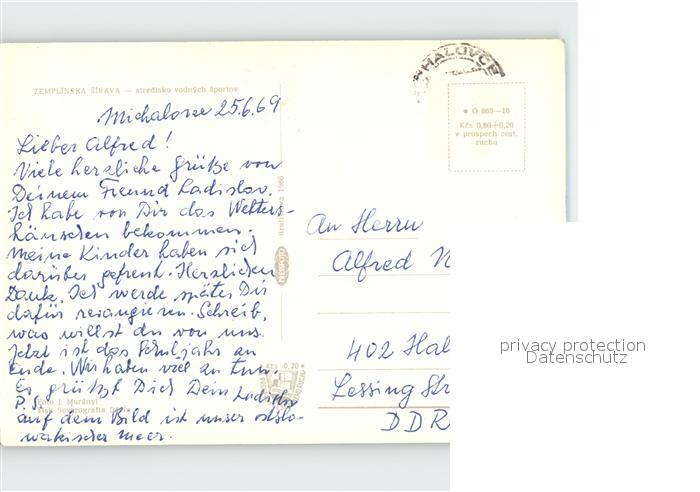 HALOVCE
ZEMPLÍNSKA ŠÍRAVA — stredisko vodných športov
O 869—18
Kčs 0,80+0,20
v prospech cest.
ruchu
Michalovce 25.6.69
Lieber Alfred!
Viele herzliche Grüße von
Deinem Freund Ladislav.
Ich habe von Dir das Wetters-
häuschen bekommen.
Meine Kinder haben sich
darüber gefreut. Herzlichen
Dank. Ich werde später Dir
dafür revangieren. Schreib,
was willst du von uns.
Jetzt ist das Schuljahr an
Ende. Wir haben viel zu tun.
Es grüßt Dich Dein Ladislav
P.S.
auf dem Bild ist unser ostslo-
wakischer Meer.
Foto J. Murányi
Tlač Severografia
Bratislava 1966
An Herrn
Alfred
402 Hal
Lessing Str
DDR
Kčs 0,20
privacy protection
Datenschutz